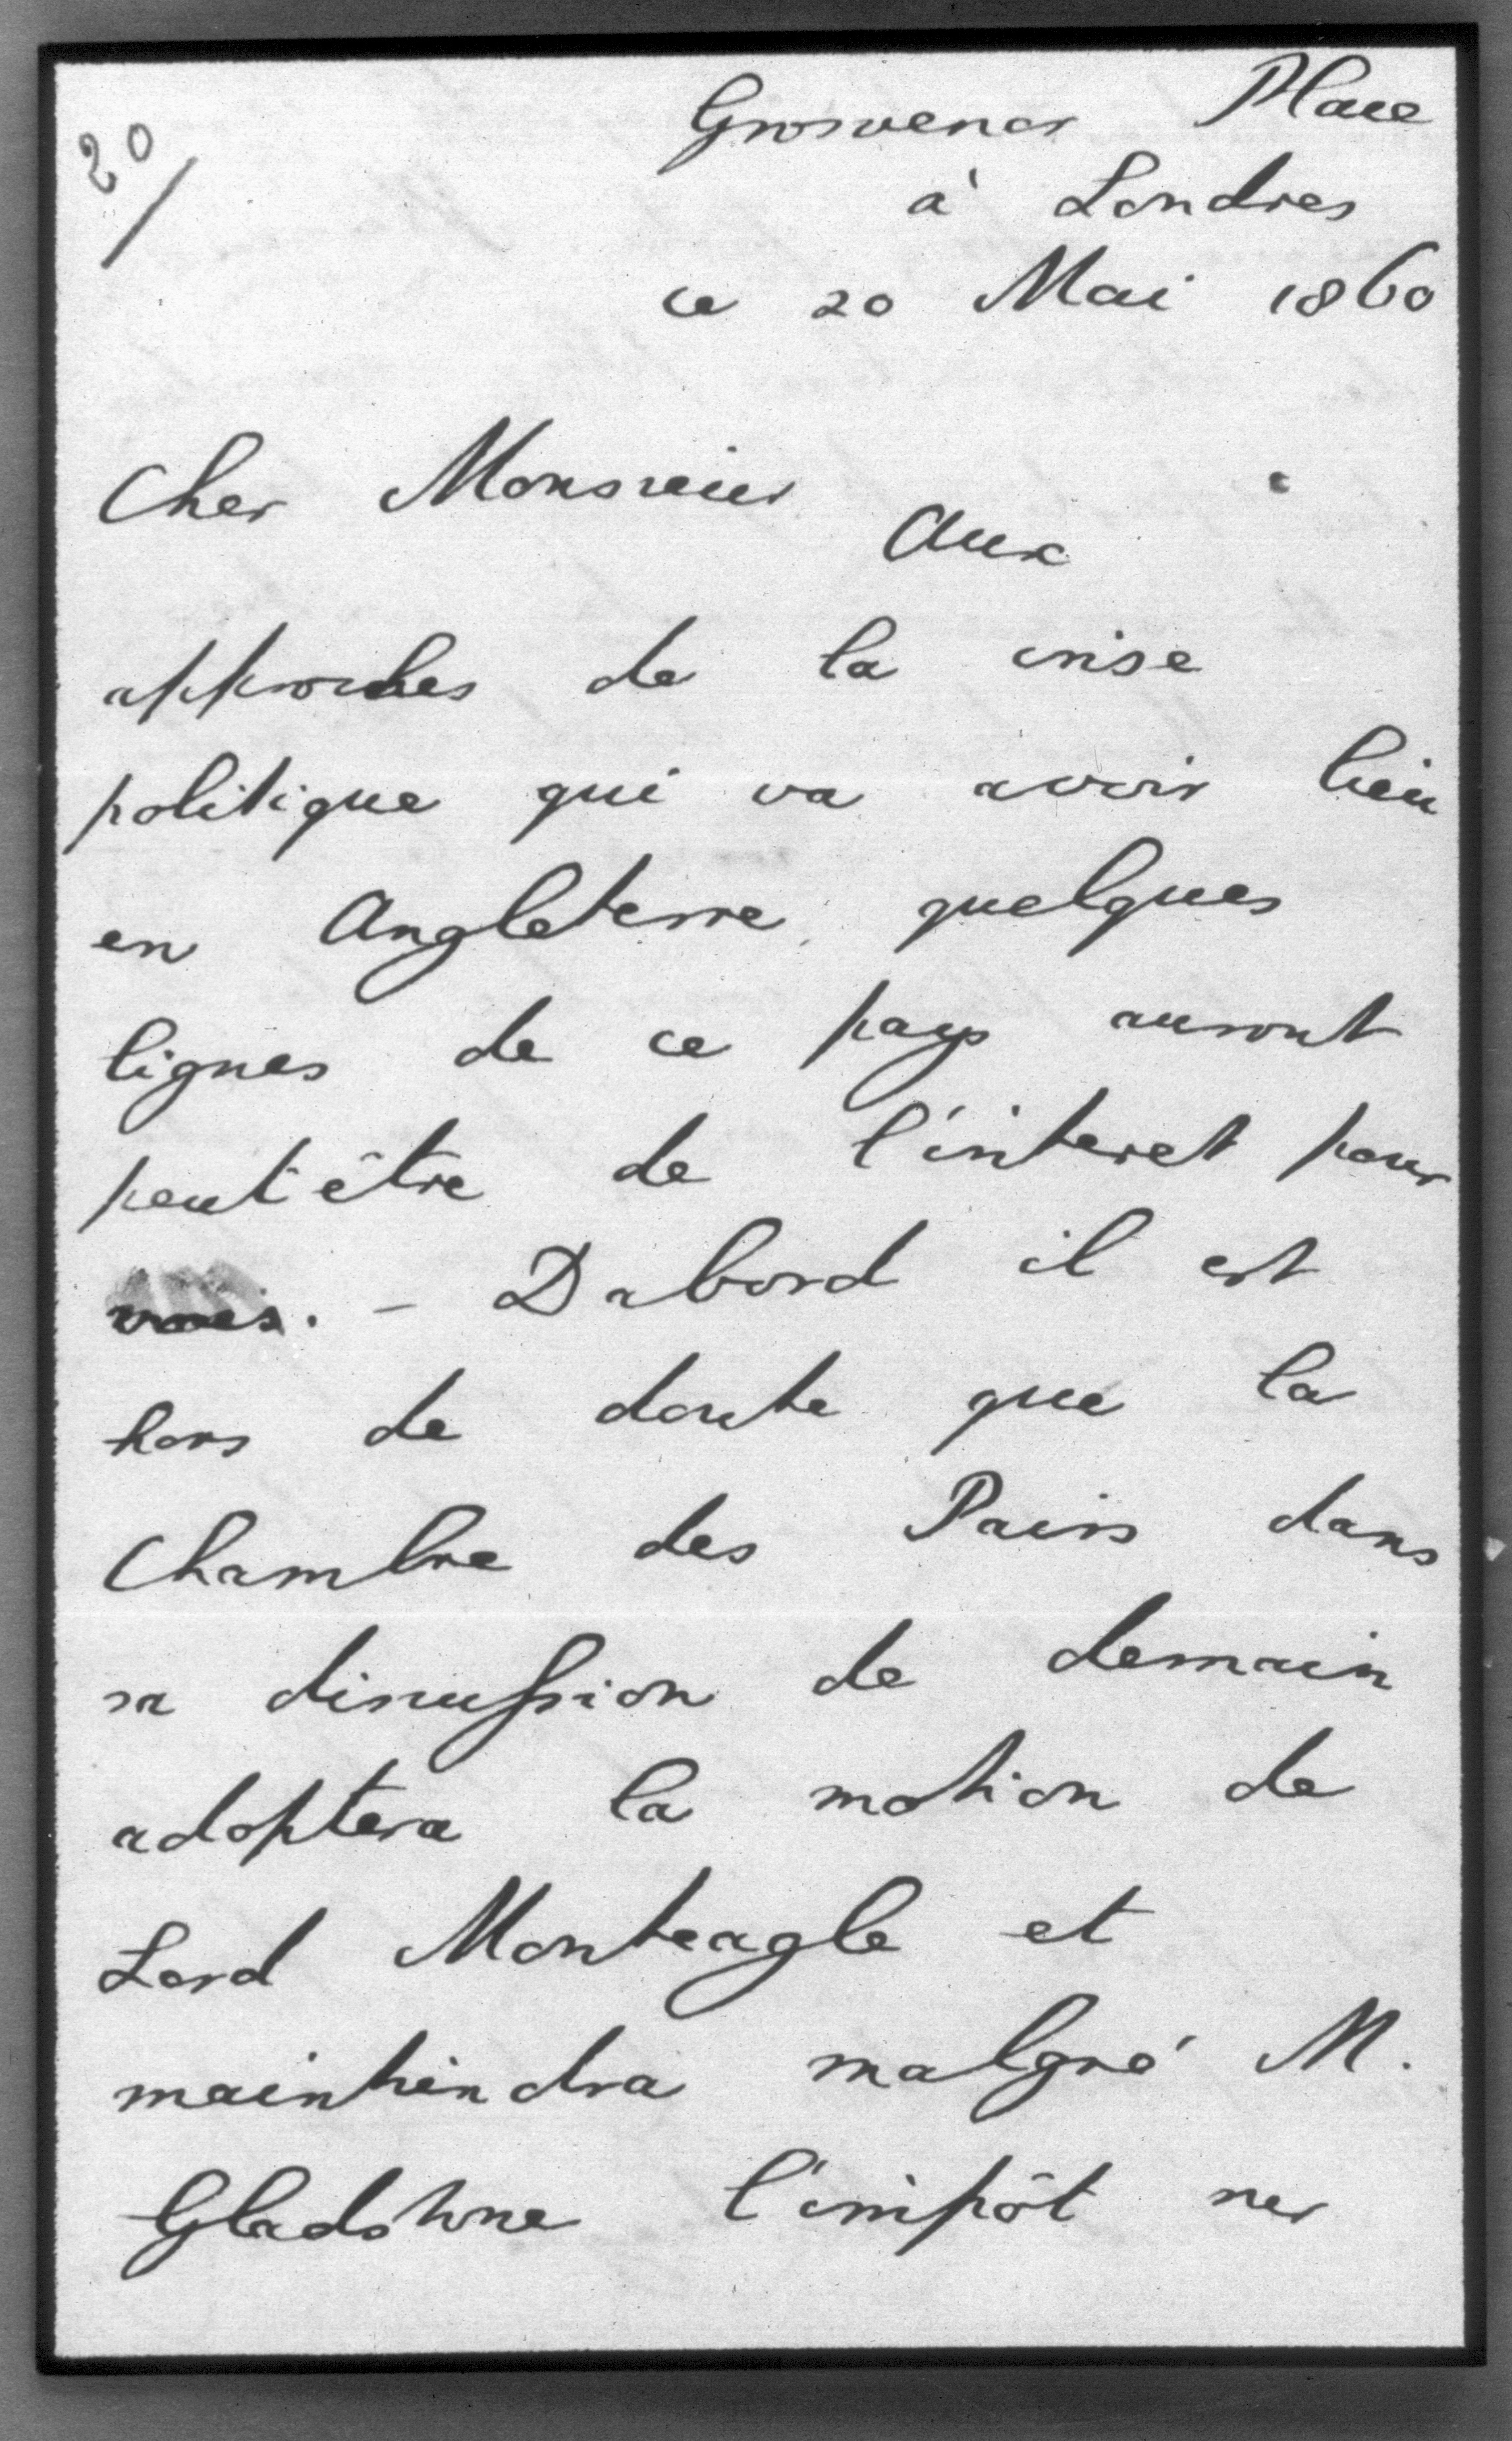 20/
Grosvenor Place
à Londres
ce 20 Mai 1860
Cher Monsieur
Aux
approches de la crise
politique qui va avoir lieu
en Angleterre, quelques
lignes de ce pays auront
peut être de l'interet pour
vous. - Dabord il est
hors de doute que la
Chambre des Pairs dans
sa discussion de demain
adoptera la motion de
Lord Monteagle et
maintiendra malgré M.
Gladstone l'impôt sur